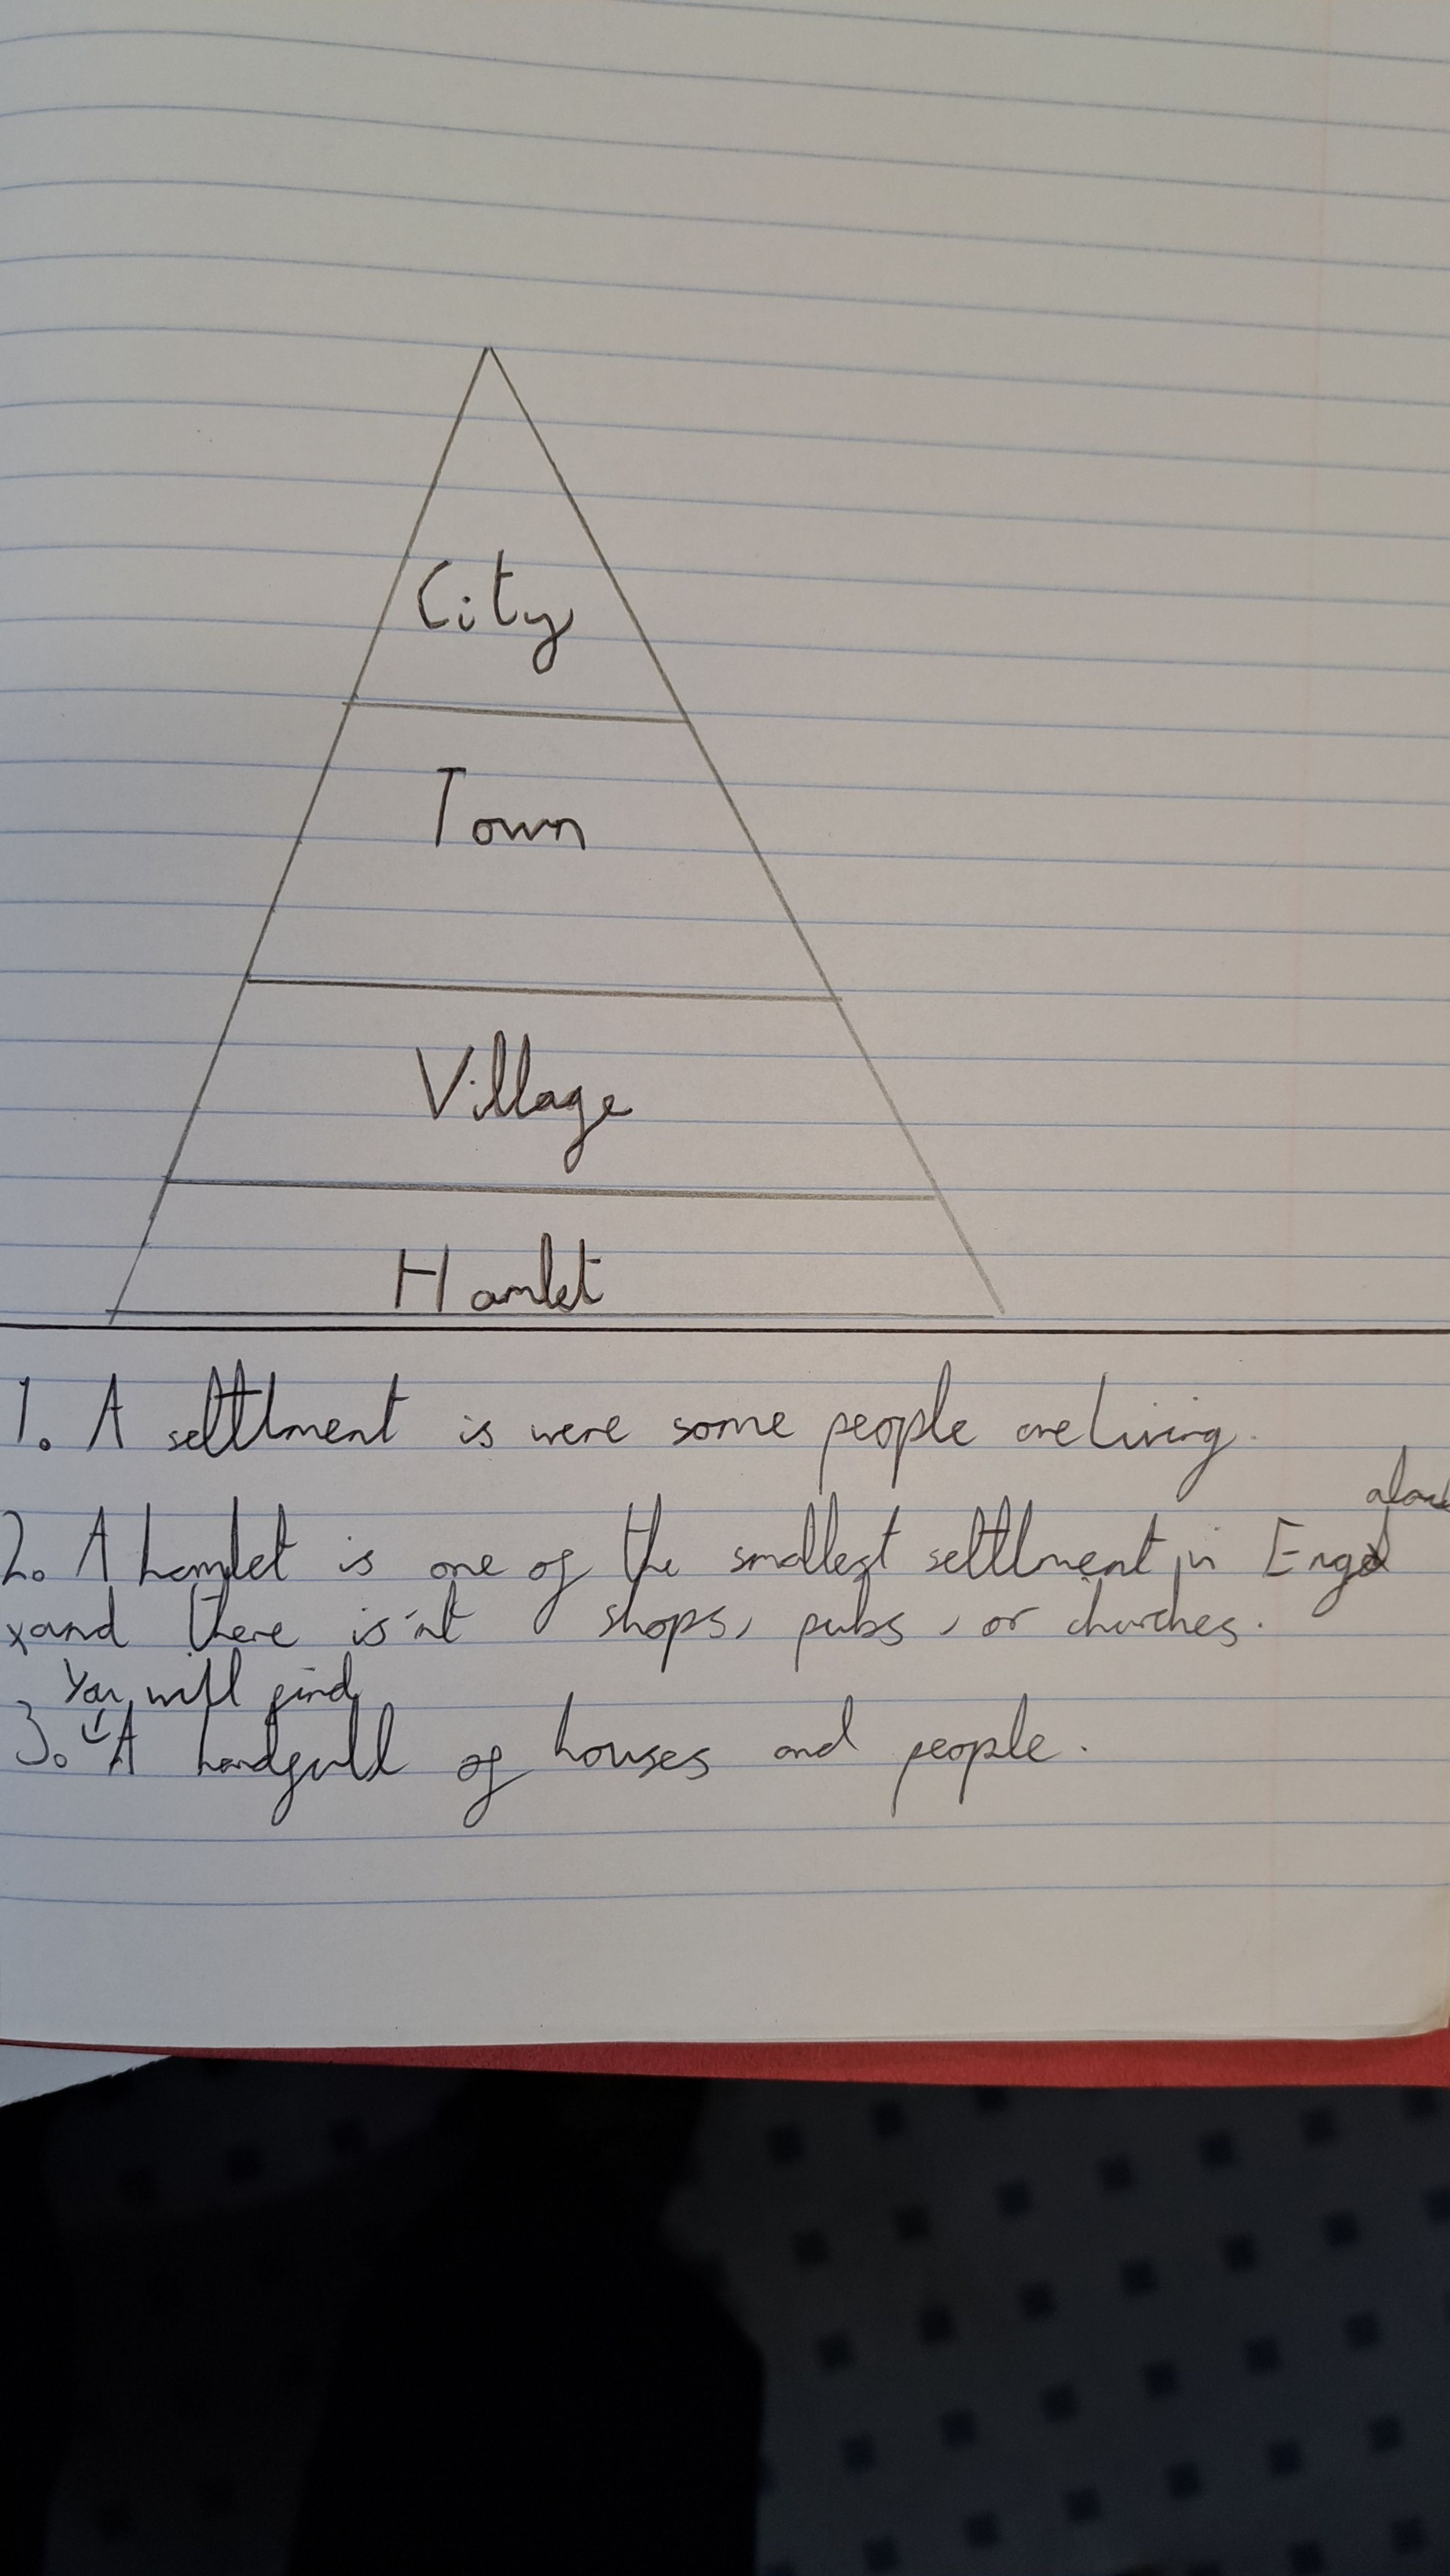 City
Town
Village
Hamlet
1. A settlment is were some people are living.
2. A hamlet is one of the smallest settlment in
xand there is'nt shops, pubs, or churches.
You will find
3. A handfull of houses and people.